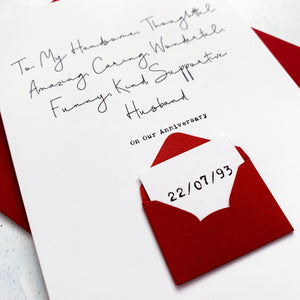 To My Handsome, Thoughtful
Amazing, Caring, Wonderful,
Funny, Kind, Supportive
Husband
On Our Anniversary
22/07/93